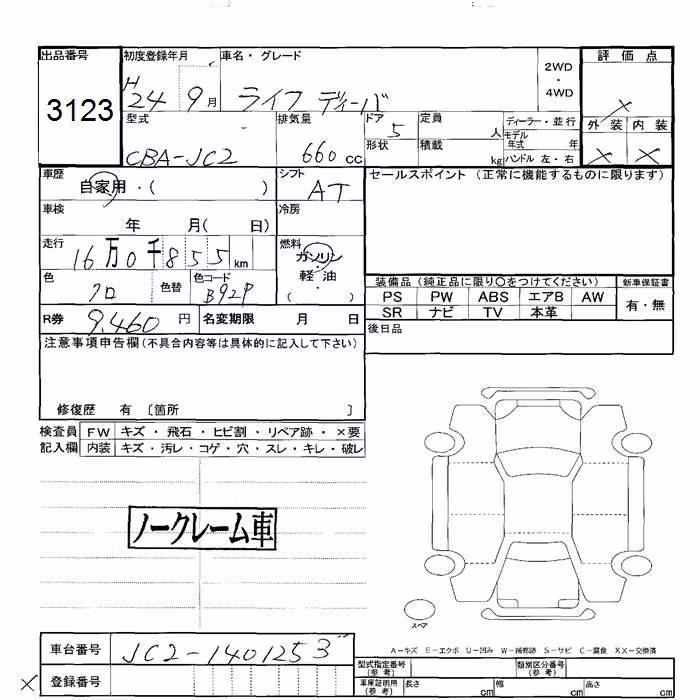 出品番号
3123
初度登録年月
H
24 9月
車名・グレード
ライフ ディーバ
2WD
・
4WD
評価点
×
外装 内装
× ×
型式
CBA-JC2
排気量
660 cc
ドア
5
形状
定員
人
積載
kg
ディーラー・並行
モデル年式 年
ハンドル 左・右
車歴
自家用・( )
シフト
AT
セールスポイント (正常に機能するものに限ります)
車検
年 月( 日)
冷房
走行
16万0千855km
燃料
ガソリン
・
軽油
( )
色
クロ
色替
色コード
B92P
装備品 (純正品に限り○をつけてください)
PS PW ABS エアB AW
SR ナビ TV 本革
新車保証書
有・無
R券
9,460 円
名変期限 月 日
後日品
注意事項申告欄(不具合内容等は具体的に記入して下さい)
修復歴 有 〔箇所 〕
検査員 FW キズ・飛石・ヒビ割・リペア跡・×要
記入欄 内装 キズ・汚レ・コゲ・穴・スレ・キレ・破レ
ノークレーム車
スペア
A－キズ E－エクボ U－凹み W－補修跡 S－サビ C－腐食 XX－交換済
車台番号
JC2-1401253
登録番号
×
型式指定番号
(参考)
類別区分番号
(参考)
車庫証明用
(参考)
長さ cm 幅 cm 高さ cm